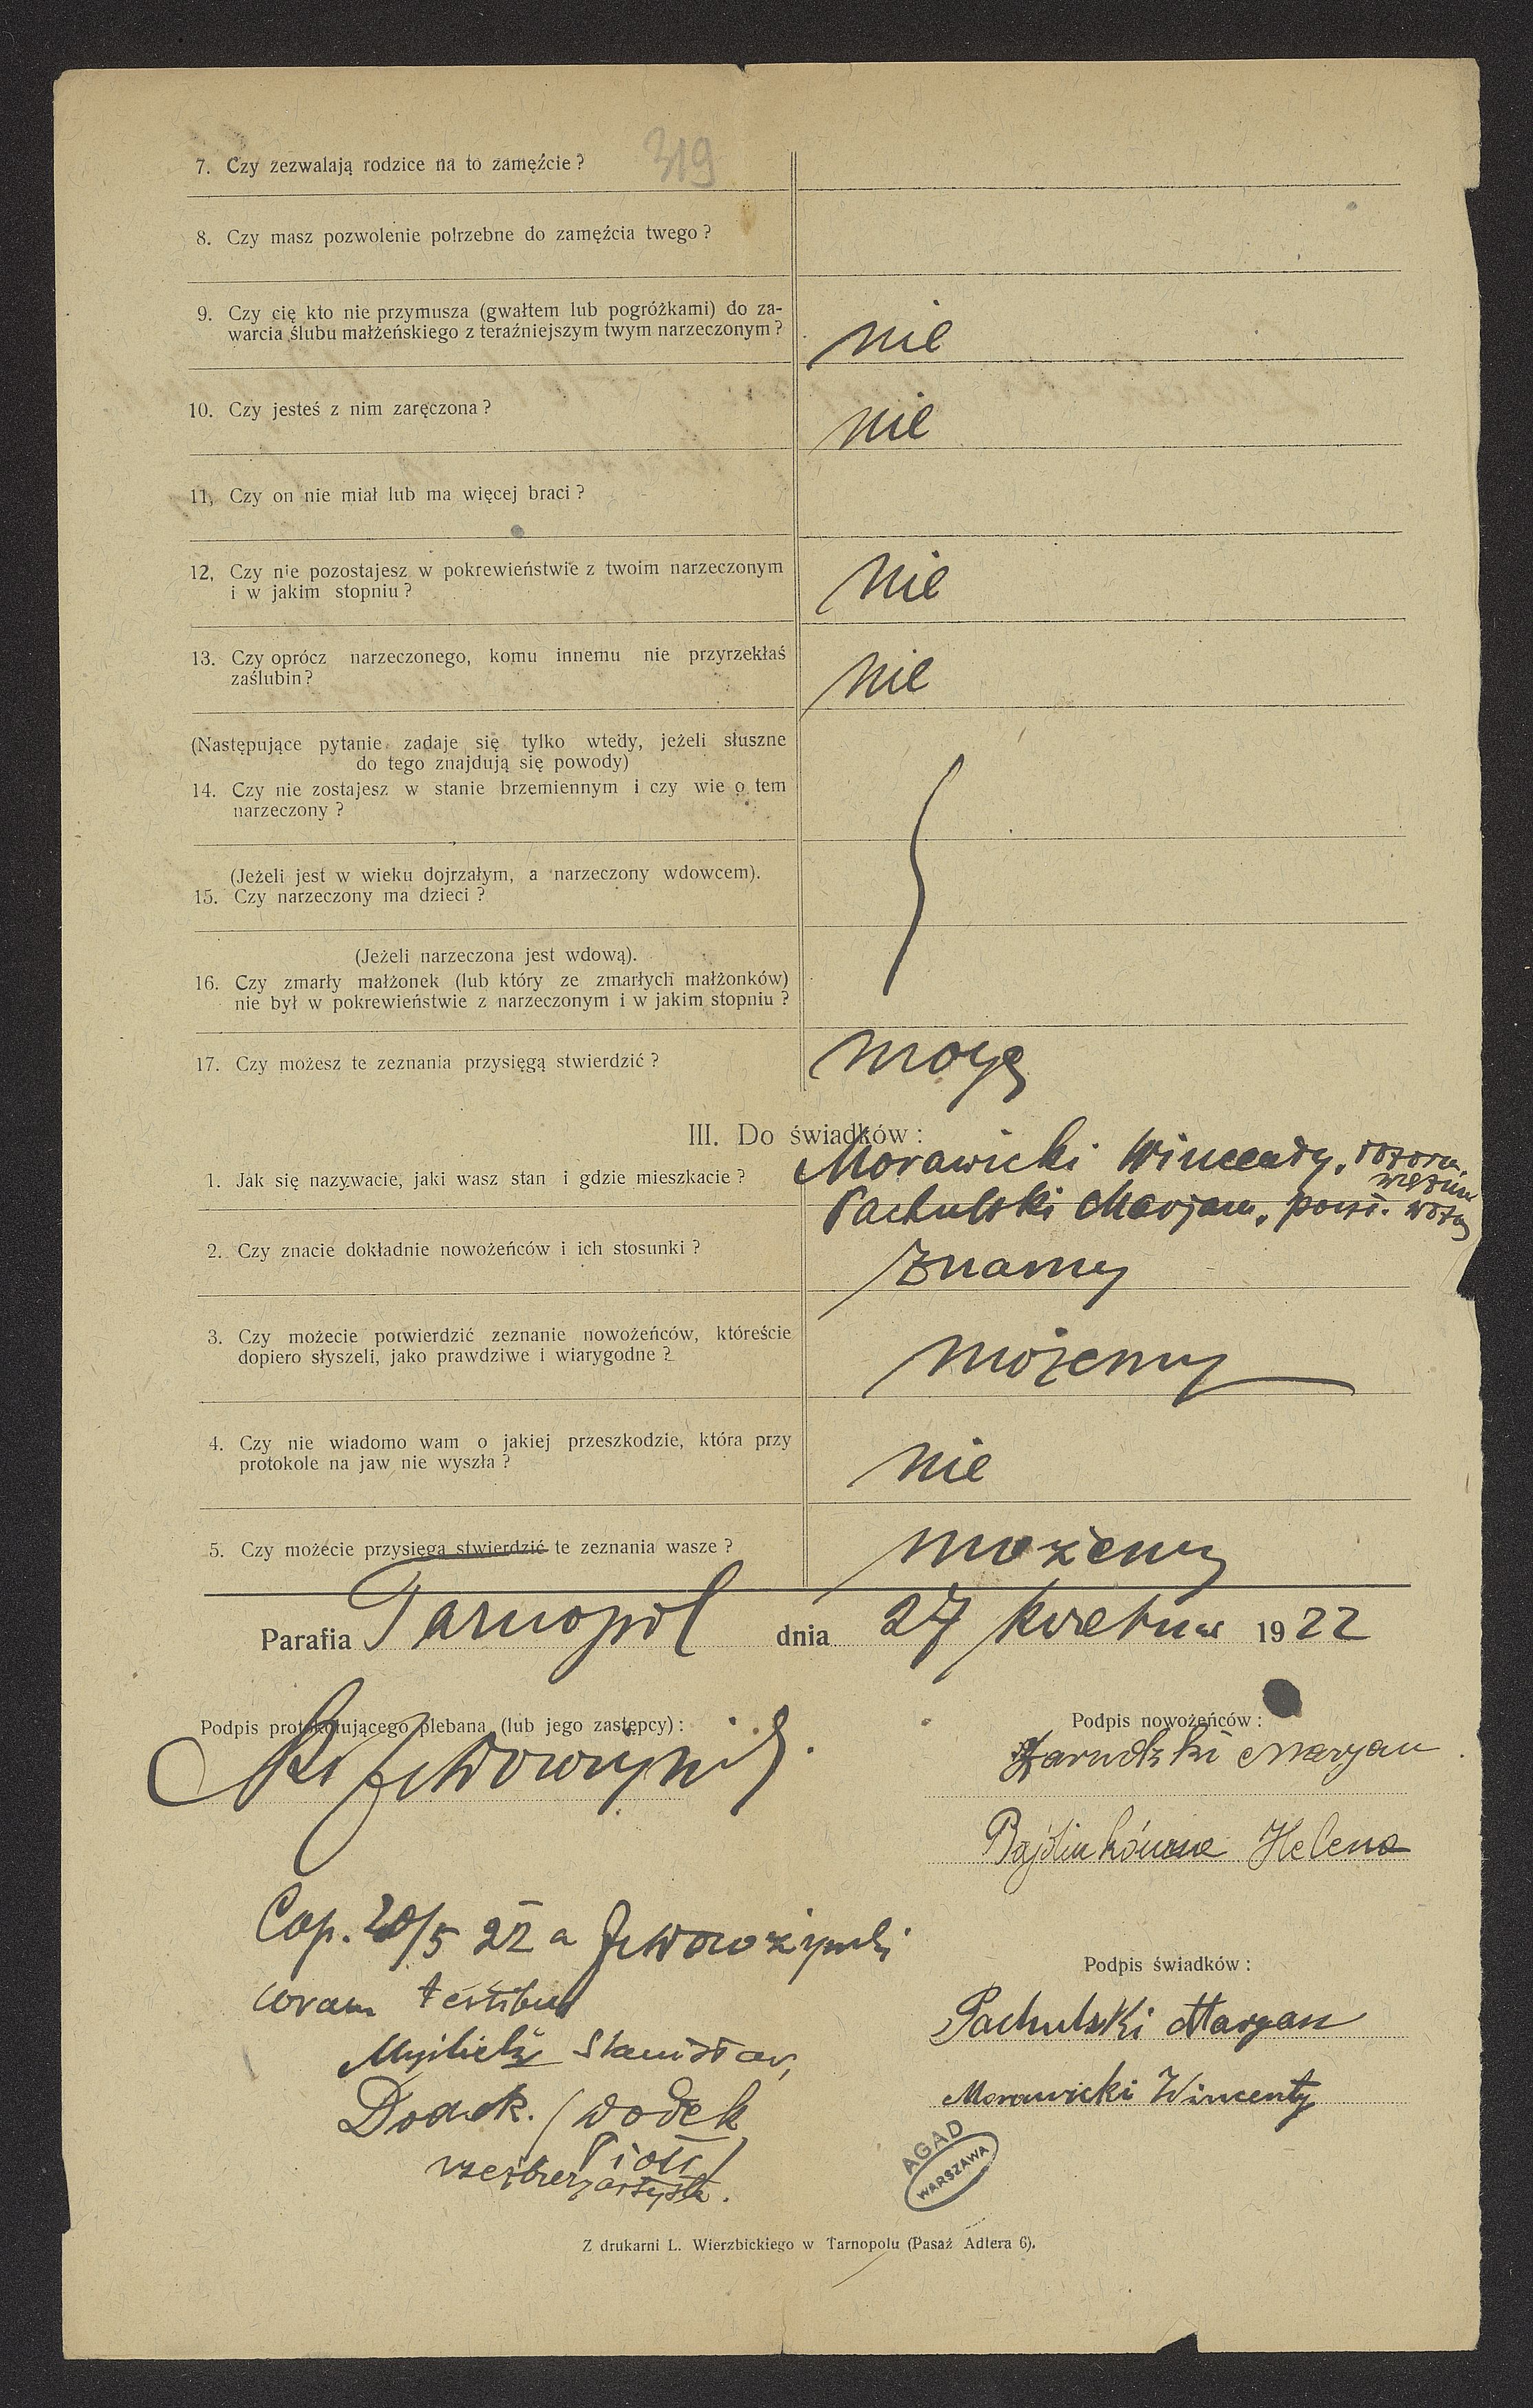 319
7. Czy zezwalają rodzice na to zamęźcie?
8. Czy masz pozwolenie potrzebne do zamęźcia twego?
9. Czy cię kto nie przymusza (gwałtem lub pogróżkami) do za-
warcia ślubu małżeńskiego z teraźniejszym twym narzeczonym?
nie
10. Czy jesteś z nim zaręczona?
nie
11, Czy on nie miał lub ma więcej braci?
12, Czy nie pozostajesz w pokrewieństwie z twoim narzeczonym
i w jakim stopniu?
nie
13. Czy oprócz narzeczonego, komu innemu nie przyrzekłaś
zaślubin?
nie
(Następujące pytanie zadaje się tylko wtedy, jeżeli słuszne
do tego znajdują się powody)
14. Czy nie zostajesz w stanie brzemiennym i czy wie o tem
narzeczony?
(Jeżeli jest w wieku dojrzałym, a narzeczony wdowcem).
15. Czy narzeczony ma dzieci?
(Jeżeli narzeczona jest wdową).
16. Czy zmarły małżonek (lub który ze zmarłych małżonków)
nie był w pokrewieństwie z narzeczonym i w jakim stopniu?
17. Czy możesz te zeznania przysięgą stwierdzić?
mogę
III. Do świadków:
1. Jak się nazywacie, jaki wasz stan i gdzie mieszkacie?
Morawicki Wincenty,
Pachulski Marjan,
2. Czy znacie dokładnie nowożeńców i ich stosunki?
znamy
3. Czy możecie potwierdzić zeznanie nowożeńców, któreście
dopiero słyszeli, jako prawdziwe i wiarygodne?
możemy
4. Czy nie wiadomo wam o jakiej przeszkodzie, która przy
protokole na jaw nie wyszła?
nie
5. Czy możecie przysięgą stwierdzić te zeznania wasze?
możemy
Parafia Tarnopol dnia 27 kwietnia 1922
Podpis protokołującego plebana (lub jego zastępcy):
Podpis nowożeńców:
Zarudzki Marjan
Helena
Cop. 20/5 22 a
coram testibus
Stanisław,
Podpis świadków:
Pachulski Marjan
Morawicki Wincenty
Piotr
AGAD
WARSZAWA
Z drukarni L. Wierzbickiego w Tarnopolu (Pasaż Adlera 6).